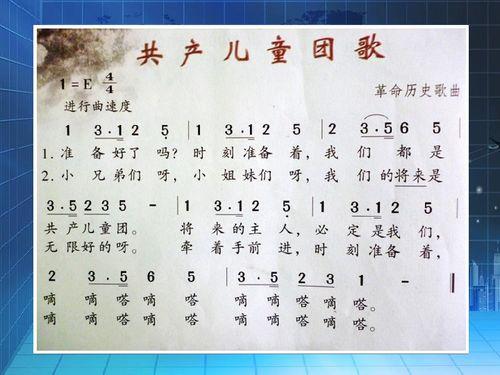 共产儿童团歌
1=E 4/4
革命历史歌曲
进行曲速度
1 3·1 2 5 | 1 3·1 2 5 | 2 3·5 6 5 |
1.准备好了吗?时刻准备着,我们都是
2.小兄弟们呀,小姐妹们呀,我们的将来是
3·5 2 3 5 - | 1 3·1 2 5 | 1 3·1 2 5 |
共产儿童团。将来的主人,必定是我们,
无限好的呀。牵着手前进,时刻准备着,
2 3·5 6 5 | 3·5 2 3 1 - ‖
嘀嘀嗒嘀嗒嘀嗒嘀嗒。
嘀嘀嗒嘀嗒嘀嗒嘀嗒。